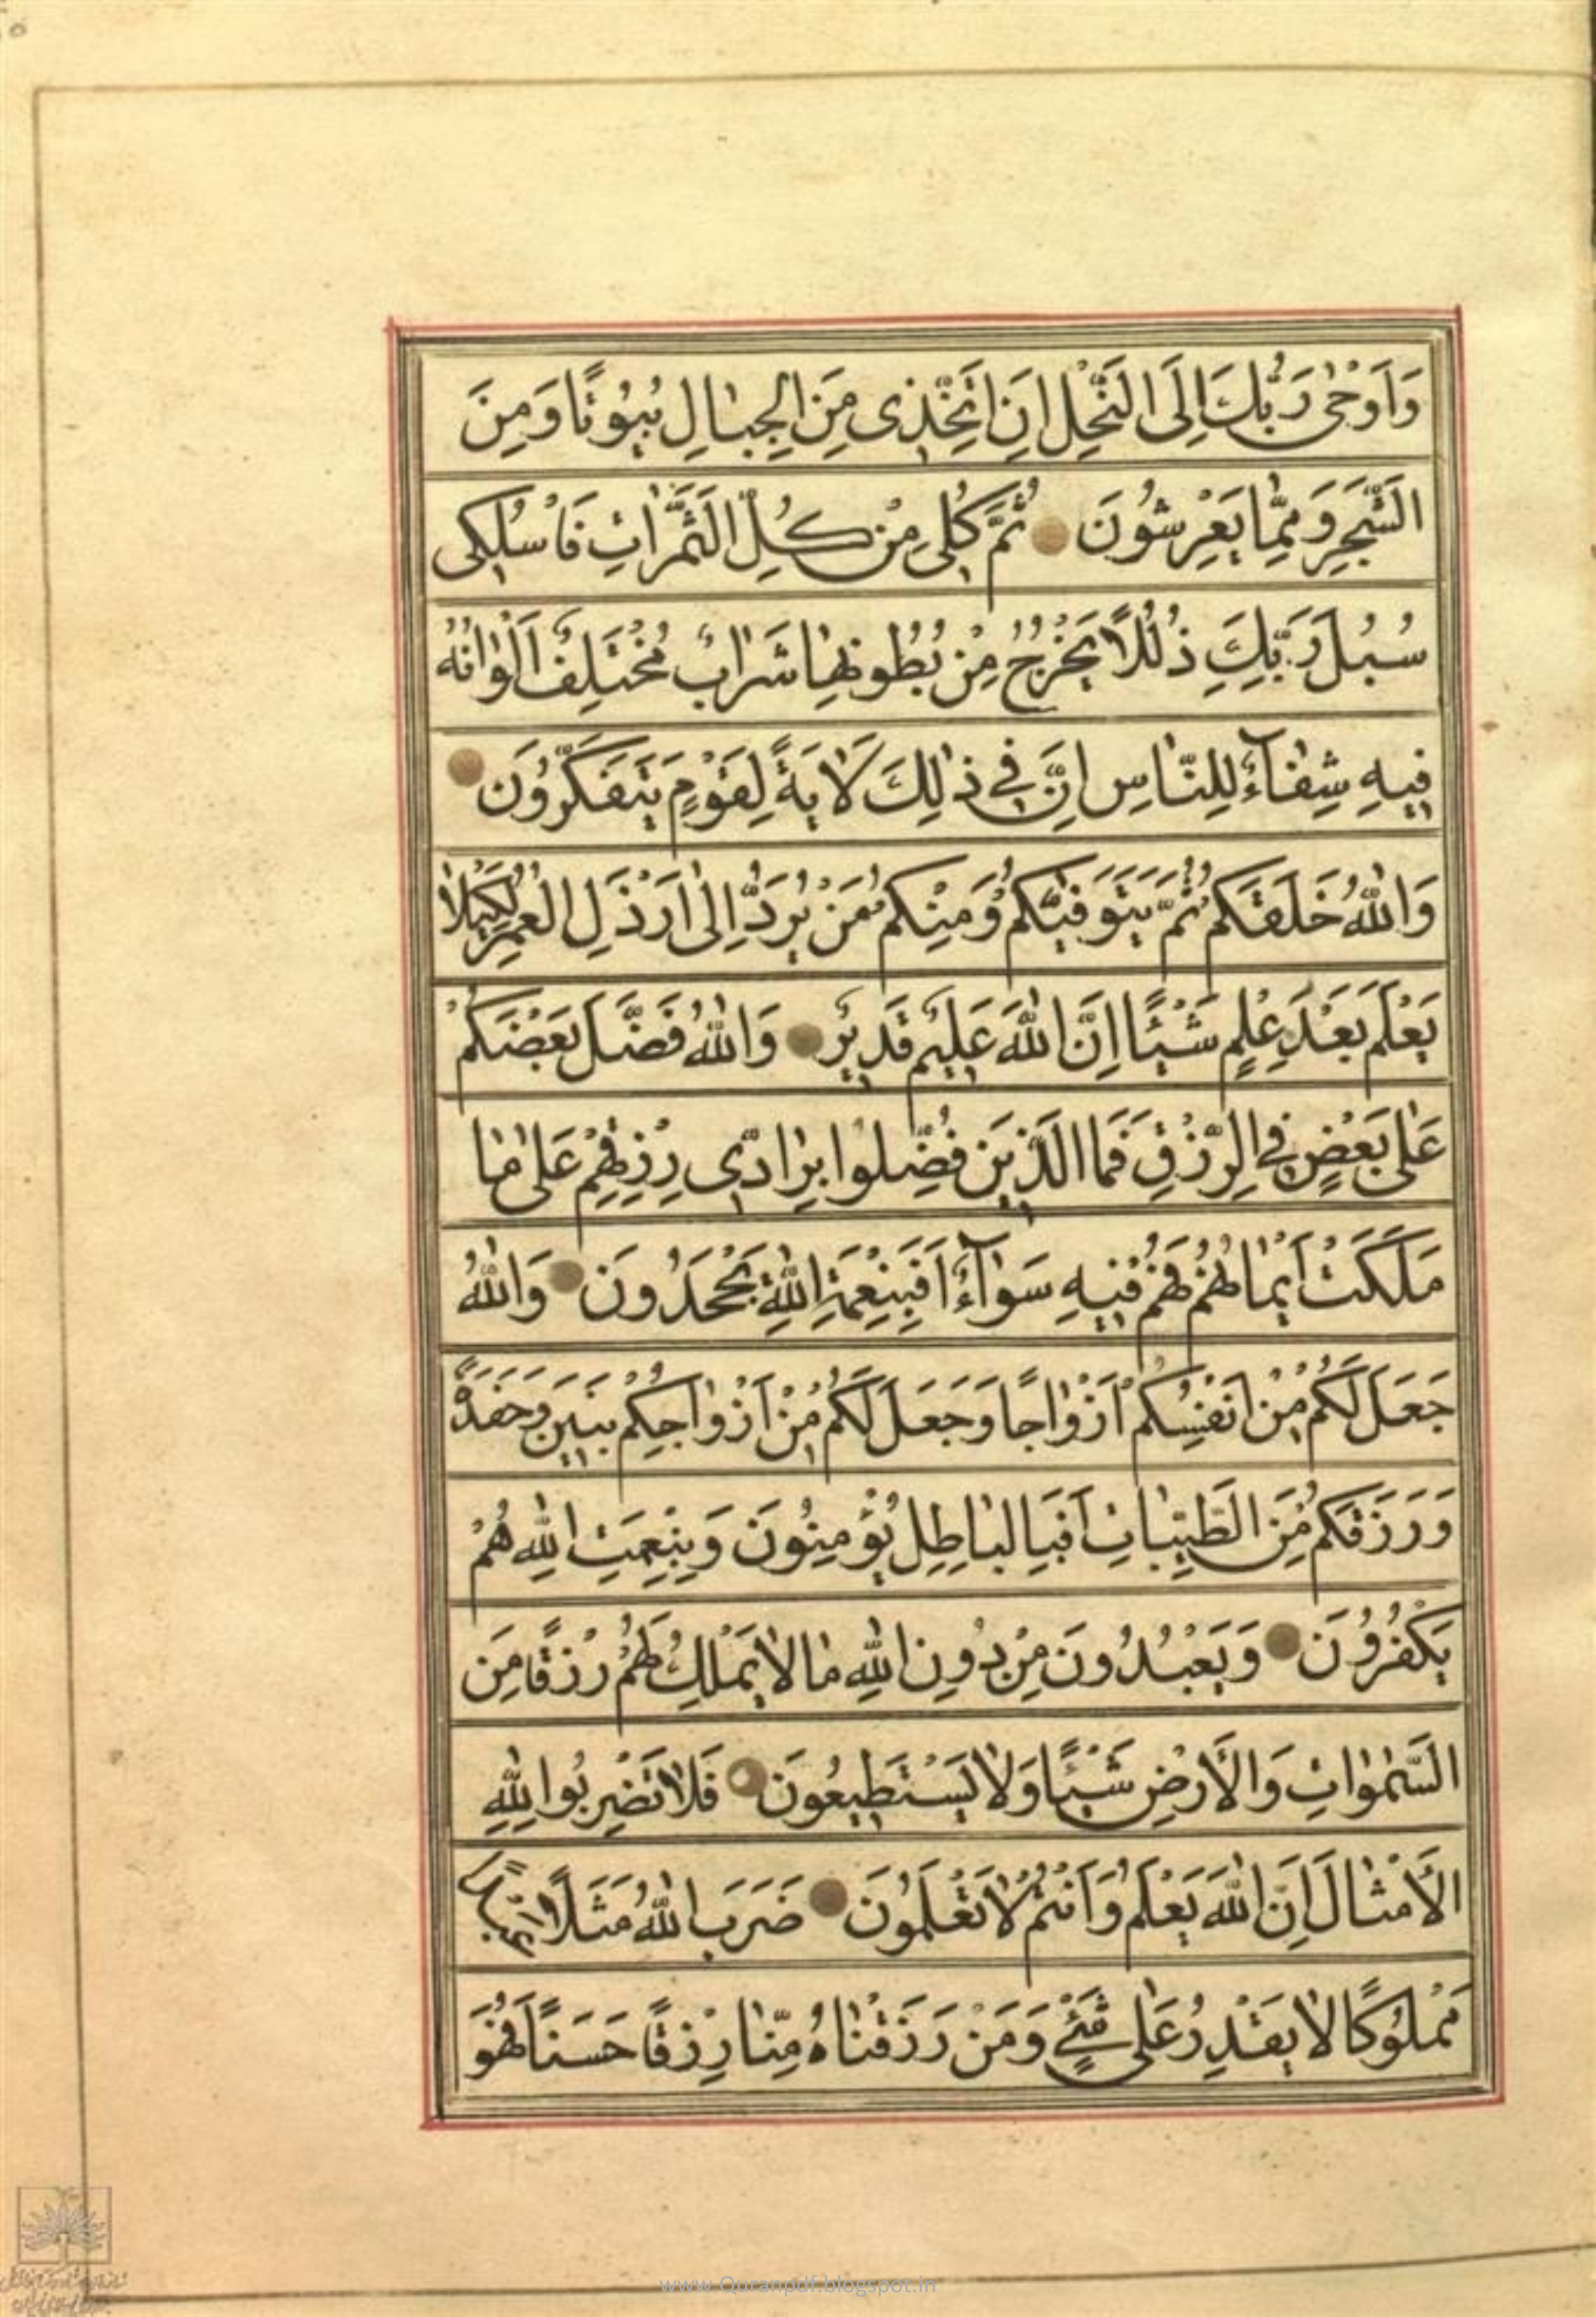 وَاَوْحٰى رَبُّكَ اِلَى النَّحْلِ اَنِ اتَّخِذِى مِنَ الْجِبٰالِ بُيُوتًا وَمِنَ
الشَّجَرِ وَمِمّٰا يَعْرِشُونَ ثُمَّ كُلِى مِنْ كُلِّ الثَّمَرٰاتِ فَاسْلُكِى
سُبُلَ رَبِّكِ ذُلُلًا يَخْرُجُ مِنْ بُطُونِهٰا شَرٰابٌ مُخْتَلِفٌ اَلْوٰانُهُ
فِيهِ شِفٰاۤءٌ لِلنّٰاسِ اِنَّ فِي ذٰلِكَ لَاٰيَةً لِقَوْمٍ يَتَفَكَّرُونَ
وَاللّٰهُ خَلَقَكُمْ ثُمَّ يَتَوَفّٰيكُمْ وَمِنْكُمْ مَنْ يُرَدُّ اِلٰى اَرْذَلِ الْعُمُرِ لِكَيْلٰا
يَعْلَمَ بَعْدَ عِلْمٍ شَيْئًا اِنَّ اللّٰهَ عَلِيمٌ قَدِيرٌ وَاللّٰهُ فَضَّلَ بَعْضَكُمْ
عَلٰى بَعْضٍ فِي الرِّزْقِ فَمَا الَّذِينَ فُضِّلُوا بِرٰادِّى رِزْقِهِمْ عَلٰى مٰا
مَلَكَتْ اَيْمٰانُهُمْ فَهُمْ فِيهِ سَوٰاۤءٌ اَفَبِنِعْمَةِ اللّٰهِ يَجْحَدُونَ وَاللّٰهُ
جَعَلَ لَكُمْ مِنْ اَنْفُسِكُمْ اَزْوٰاجًا وَجَعَلَ لَكُمْ مِنْ اَزْوٰاجِكُمْ بَنِينَ وَحَفَدَةً
وَرَزَقَكُمْ مِنَ الطَّيِّبٰاتِ اَفَبِالْبٰاطِلِ يُؤْمِنُونَ وَبِنِعْمَتِ اللّٰهِ هُمْ
يَكْفُرُونَ وَيَعْبُدُونَ مِنْ دُونِ اللّٰهِ مٰا لٰا يَمْلِكُ لَهُمْ رِزْقًا مِنَ
السَّمٰوٰاتِ وَالْاَرْضِ شَيْئًا وَلٰا يَسْتَطِيعُونَ فَلٰا تَضْرِبُوا لِلّٰهِ
الْاَمْثٰالَ اِنَّ اللّٰهَ يَعْلَمُ وَاَنْتُمْ لٰا تَعْلَمُونَ ضَرَبَ اللّٰهُ مَثَلًا عَبْدًا
مَمْلُوكًا لٰا يَقْدِرُ عَلٰى شَيْءٍ وَمَنْ رَزَقْنٰاهُ مِنّٰا رِزْقًا حَسَنًا فَهُوَ
www.Quranpdf.blogspot.in